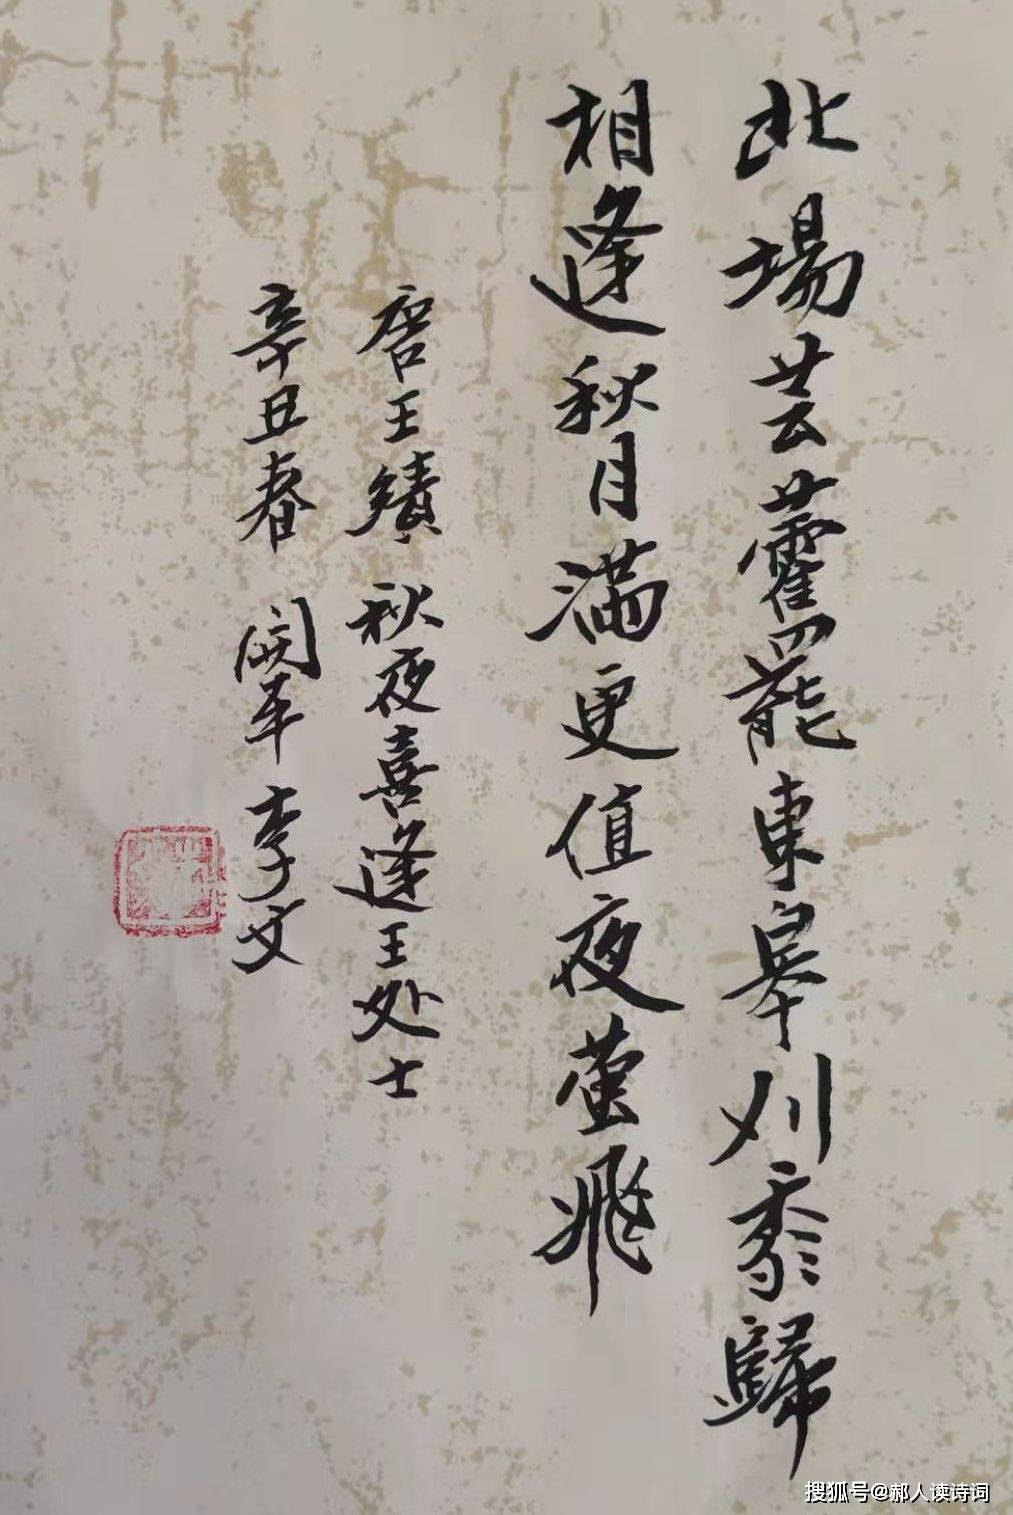 北場芸藿罷東皋刈黍歸
相逢秋月滿更值夜萤飛
唐王績秋夜喜逢王处士
辛丑春 开车李文
搜狐号@郝人读诗词